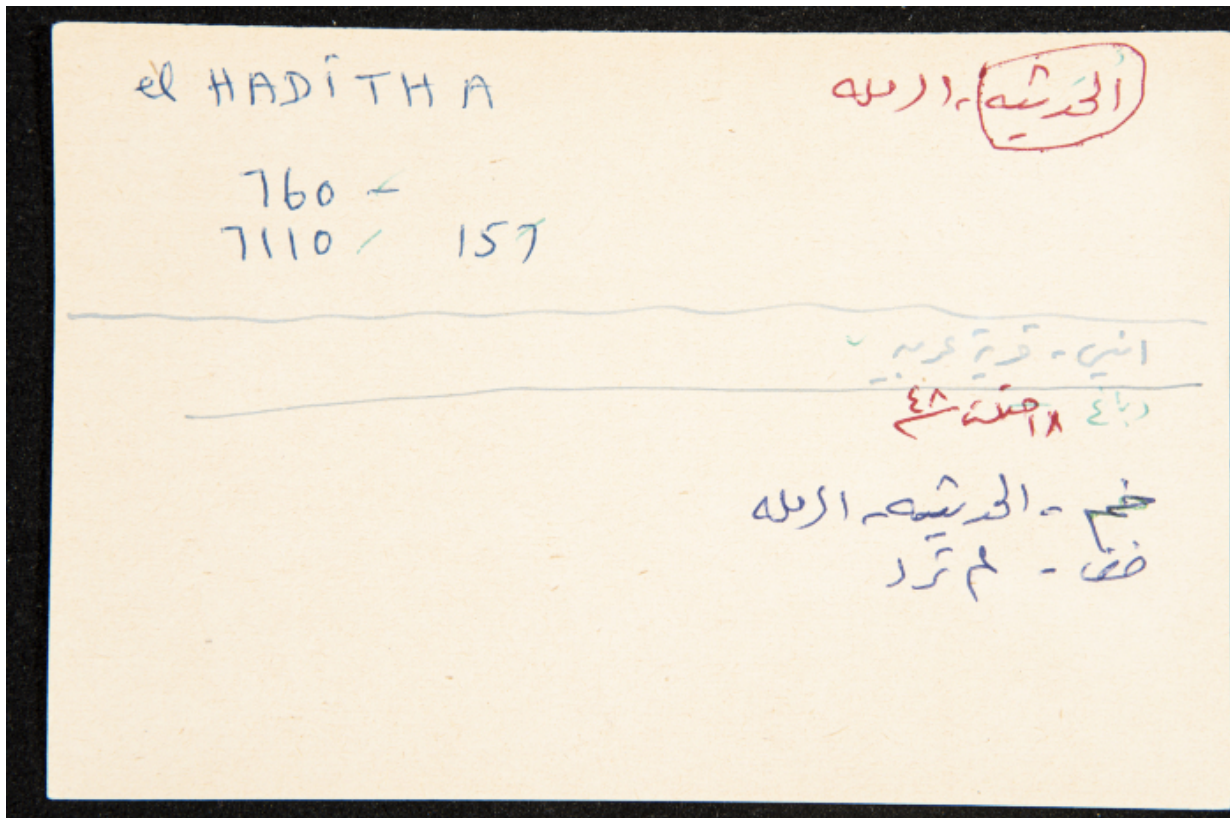 el HADITHA
الحَدثيه - الرمله
760 -
7110 / 157
انبي - قرية عربيه
دباغ ٤٨
خم - الحدثيه - الرمله
خف - لم ترد